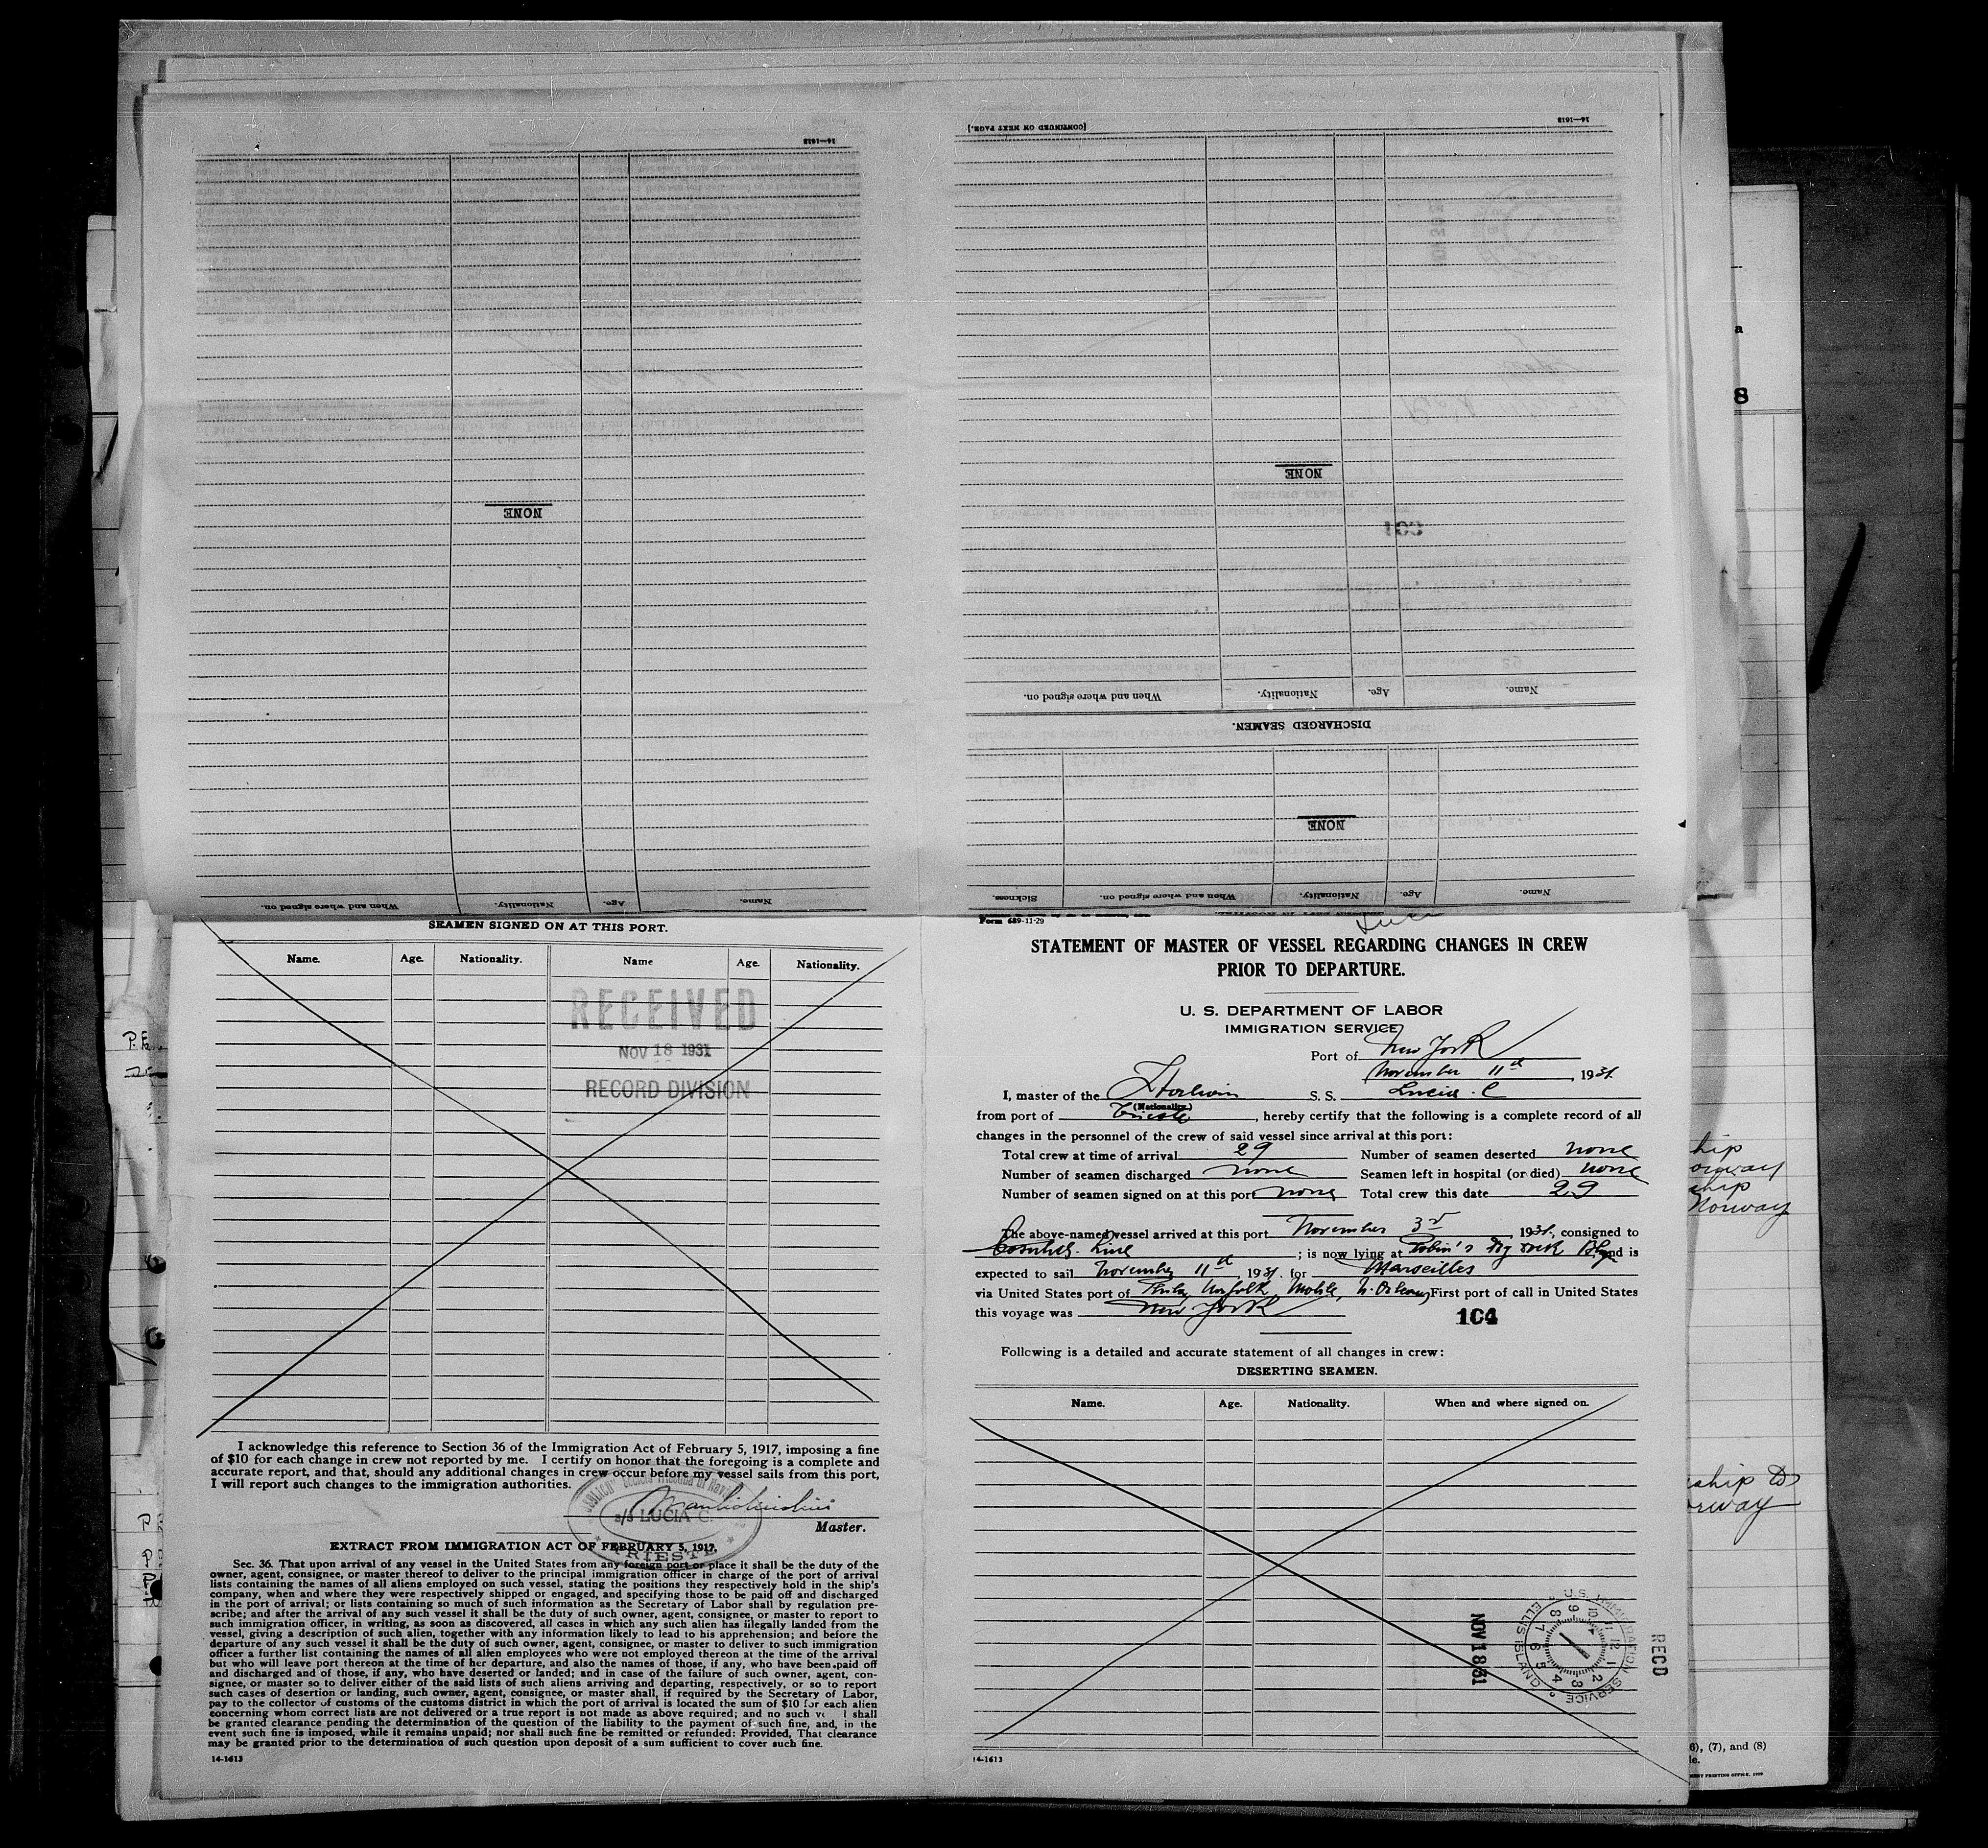 [CONTINUED ON NEXT PAGE.]
14—1613
14—1613
NONE
NONE
103
Name.
Age.
Nationality.
When and where signed on.
DISCHARGED SEAMEN.
NONE
Name.
Age.
Nationality.
When and where signed on.
Sickness.
Name.
Age.
Nationality.
When and where signed on.
SEAMEN SIGNED ON AT THIS PORT.
Name. Age. Nationality. Name Age. Nationality.
RECEIVED
NOV 18 1931
RECORD DIVISION
I acknowledge this reference to Section 36 of the Immigration Act of February 5, 1917, imposing a fine
of $10 for each change in crew not reported by me. I certify on honor that the foregoing is a complete and
accurate report, and that, should any additional changes in crew occur before my vessel sails from this port,
I will report such changes to the immigration authorities.
s/s LUCIA C.
TRIESTE
Master.
EXTRACT FROM IMMIGRATION ACT OF FEBRUARY 5, 1917.
Sec. 36. That upon arrival of any vessel in the United States from any foreign port or place it shall be the duty of the
owner, agent, consignee, or master thereof to deliver to the principal immigration officer in charge of the port of arrival
lists containing the names of all aliens employed on such vessel, stating the positions they respectively hold in the ship's
company, when and where they were respectively shipped or engaged, and specifying those to be paid off and discharged
in the port of arrival; or lists containing so much of such information as the Secretary of Labor shall by regulation pre-
scribe; and after the arrival of any such vessel it shall be the duty of such owner, agent, consignee, or master to report to
such immigration officer, in writing, as soon as discovered, all cases in which any such alien has illegally landed from the
vessel, giving a description of such alien, together with any information likely to lead to his apprehension; and before the
departure of any such vessel it shall be the duty of such owner, agent, consignee, or master to deliver to such immigration
officer a further list containing the names of all alien employees who were not employed thereon at the time of the arrival
but who will leave port thereon at the time of her departure, and also the names of those, if any, who have been paid off
and discharged and of those, if any, who have deserted or landed; and in case of the failure of such owner, agent, con-
signee, or master so to deliver either of the said lists of such aliens arriving and departing, respectively, or so to report
such cases of desertion or landing, such owner, agent, consignee, or master shall, if required by the Secretary of Labor,
pay to the collector of customs of the customs district in which the port of arrival is located the sum of $10 for each alien
concerning whom correct lists are not delivered or a true report is not made as above required; and no such ve l shall
be granted clearance pending the determination of the question of the liability to the payment of such fine, and, in the
event such fine is imposed, while it remains unpaid; nor shall such fine be remitted or refunded: Provided, That clearance
may be granted prior to the determination of such question upon deposit of a sum sufficient to cover such fine.
14-1613
Form 689-11-29
STATEMENT OF MASTER OF VESSEL REGARDING CHANGES IN CREW
PRIOR TO DEPARTURE.
U. S. DEPARTMENT OF LABOR
IMMIGRATION SERVICE
Port of New York
November 11th, 1931.
I, master of the Italian S. S. Lucia C
(Nationality.)
from port of Trieste, hereby certify that the following is a complete record of all
changes in the personnel of the crew of said vessel since arrival at this port:
Total crew at time of arrival 29 Number of seamen deserted none
Number of seamen discharged none Seamen left in hospital (or died) none
Number of seamen signed on at this port none Total crew this date 29
The above-named vessel arrived at this port November 3d, 1931., consigned to
Cosulich Line; is now lying at Robin's Dry Dock Bkyn and is
expected to sail November 11th, 1931. for Marseilles
via United States port of Phila, Norfolk, Mobile, N. Orleans, First port of call in United States
this voyage was New York
104
Following is a detailed and accurate statement of all changes in crew:
DESERTING SEAMEN.
Name. Age. Nationality. When and where signed on.
U.S. IMMIGRATION SERVICE
ELLIS ISLAND
NOV 18 31
RECD
14-1613
a
8
hip
orway
ship
Norway
ship
orway
6), (7), and (8)